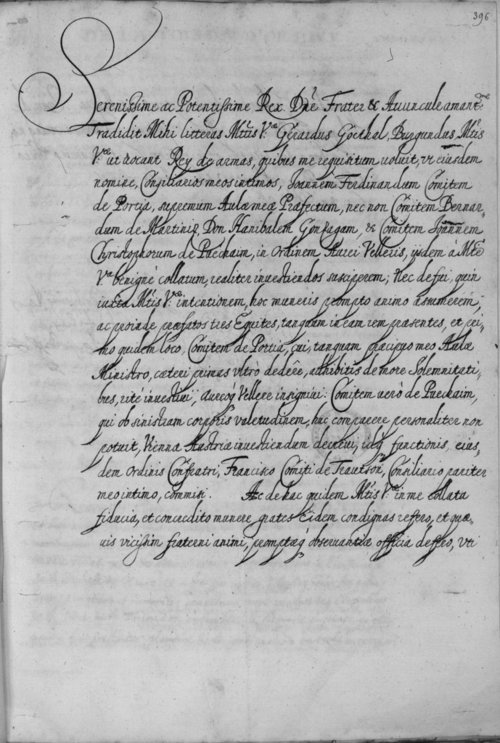 396
Serenissime ac Potentissime Rex Dne Frater & Auuncule amantme
Tradidit Mihi litteras Mtis Vrae Gerardus Goethal, Burgundus Mtis
Vrae ut vocant Rey do armas, quibus me requisitum voluit, vt eiusdem
nomine, Consiliarios meos intimos, Joannem Ferdinandum Comitem
de Portia, supremum Aulae meae Praefectum, nec non Comitem Bernar-
dum de Martiniz, Don Hanibalem Gonzagam, & Comitem Joannem
Christophorum de Puechaim, in Ordinem Aurei Velleris, ijsdem à Mte
Vra benignè collatum, realiter inuestiendos susciperem; Nec defui, quin
iuxta Mtis Vrae intentionem, hoc muneris prompto animo assumerem;
ac proinde praefatos tres Equites, tanquam in eam rem praesentes, et pri-
mo quidem loco, Comitem de Portia, cui, tanquam praecipuo meo Aulae
Ministro, caeteri primas vltro dedêre, adhibitis de more Solemnitati-
bus, ritè inuestiui, aureoq Vellere insigniui: Comitem verò de Puechaim,
qui ob sinistram corporis valetudinem, huc comparere personaliter non
potuit, Viennae Austriae inuestiendum decreui, idq functionis eius-
dem Ordinis Confratri, Francisco Comiti de Trautson, Consiliario pariter
meo intimo, commisi. Ac de hac quidem Mtis Vrae in me collata
fiducia, et concredito munere, grates Eidem condignas refero, et quae-
uis vicissim fraterni animi, promptaeq obseruantiae officia defero, vti